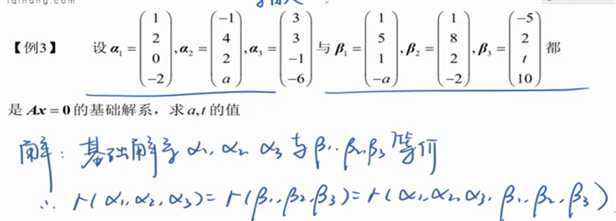 【例3】 设 α₁ = (1, 2, 0, -2)ᵀ, α₂ = (-1, 4, 2, a)ᵀ, α₃ = (3, 3, -1, -6)ᵀ 与 β₁ = (1, 5, 1, -a)ᵀ, β₂ = (1, 8, 2, -2)ᵀ, β₃ = (-5, 2, t, 10)ᵀ 都
是 Ax = 0 的基础解系，求 a,t 的值
解：基础解系 α₁, α₂ α₃ 与 β₁, β₂, β₃ 等价
∴ r(α₁,α₂,α₃) = r(β₁,β₂,β₃) = r(α₁,α₂,α₃, β₁,β₂,β₃)